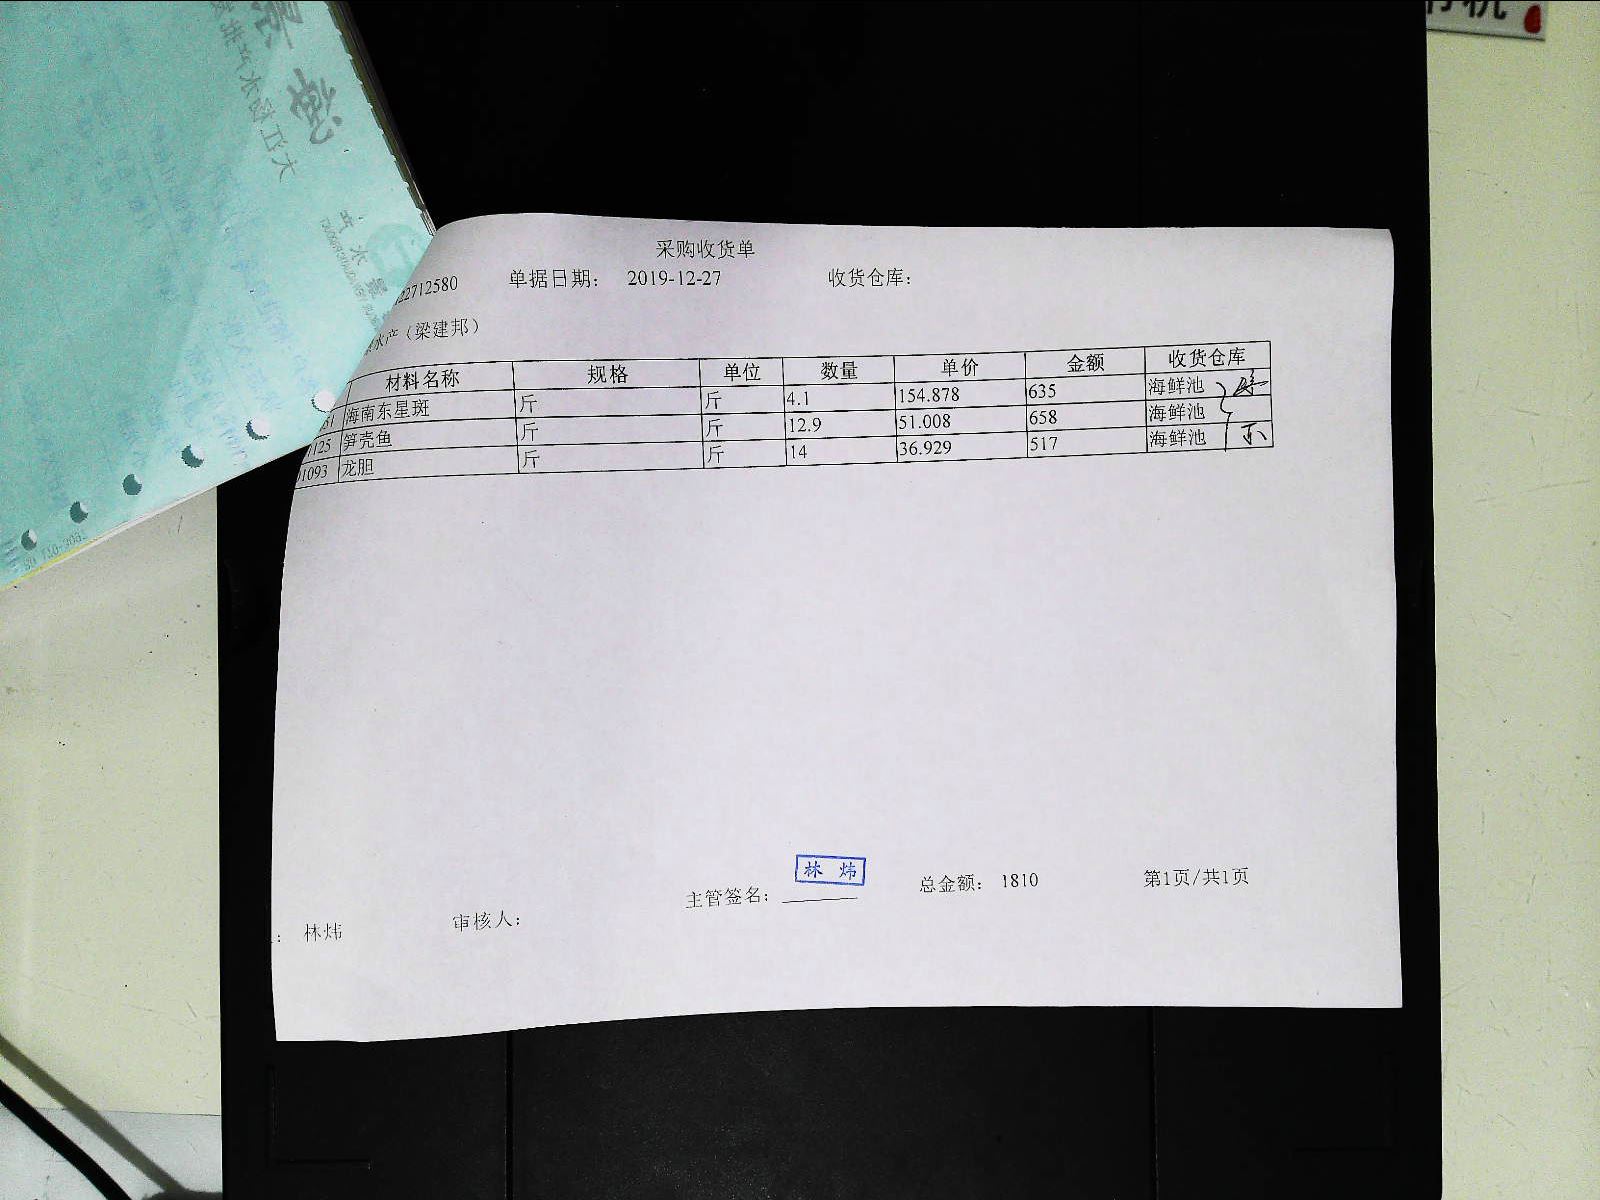 采购收货单
22712580 单据日期： 2019-12-27 收货仓库：
水产（梁建邦）
材料名称 规格 单位 数量 单价 金额 收货仓库
31 海南东星斑 斤 斤 4.1 154.878 635 海鲜池
125 笋壳鱼 斤 斤 12.9 51.008 658 海鲜池
1093 龙胆 斤 斤 14 36.929 517 海鲜池
林 炜
主管签名： 总金额： 1810 第1页/共1页
： 林炜 审核人：